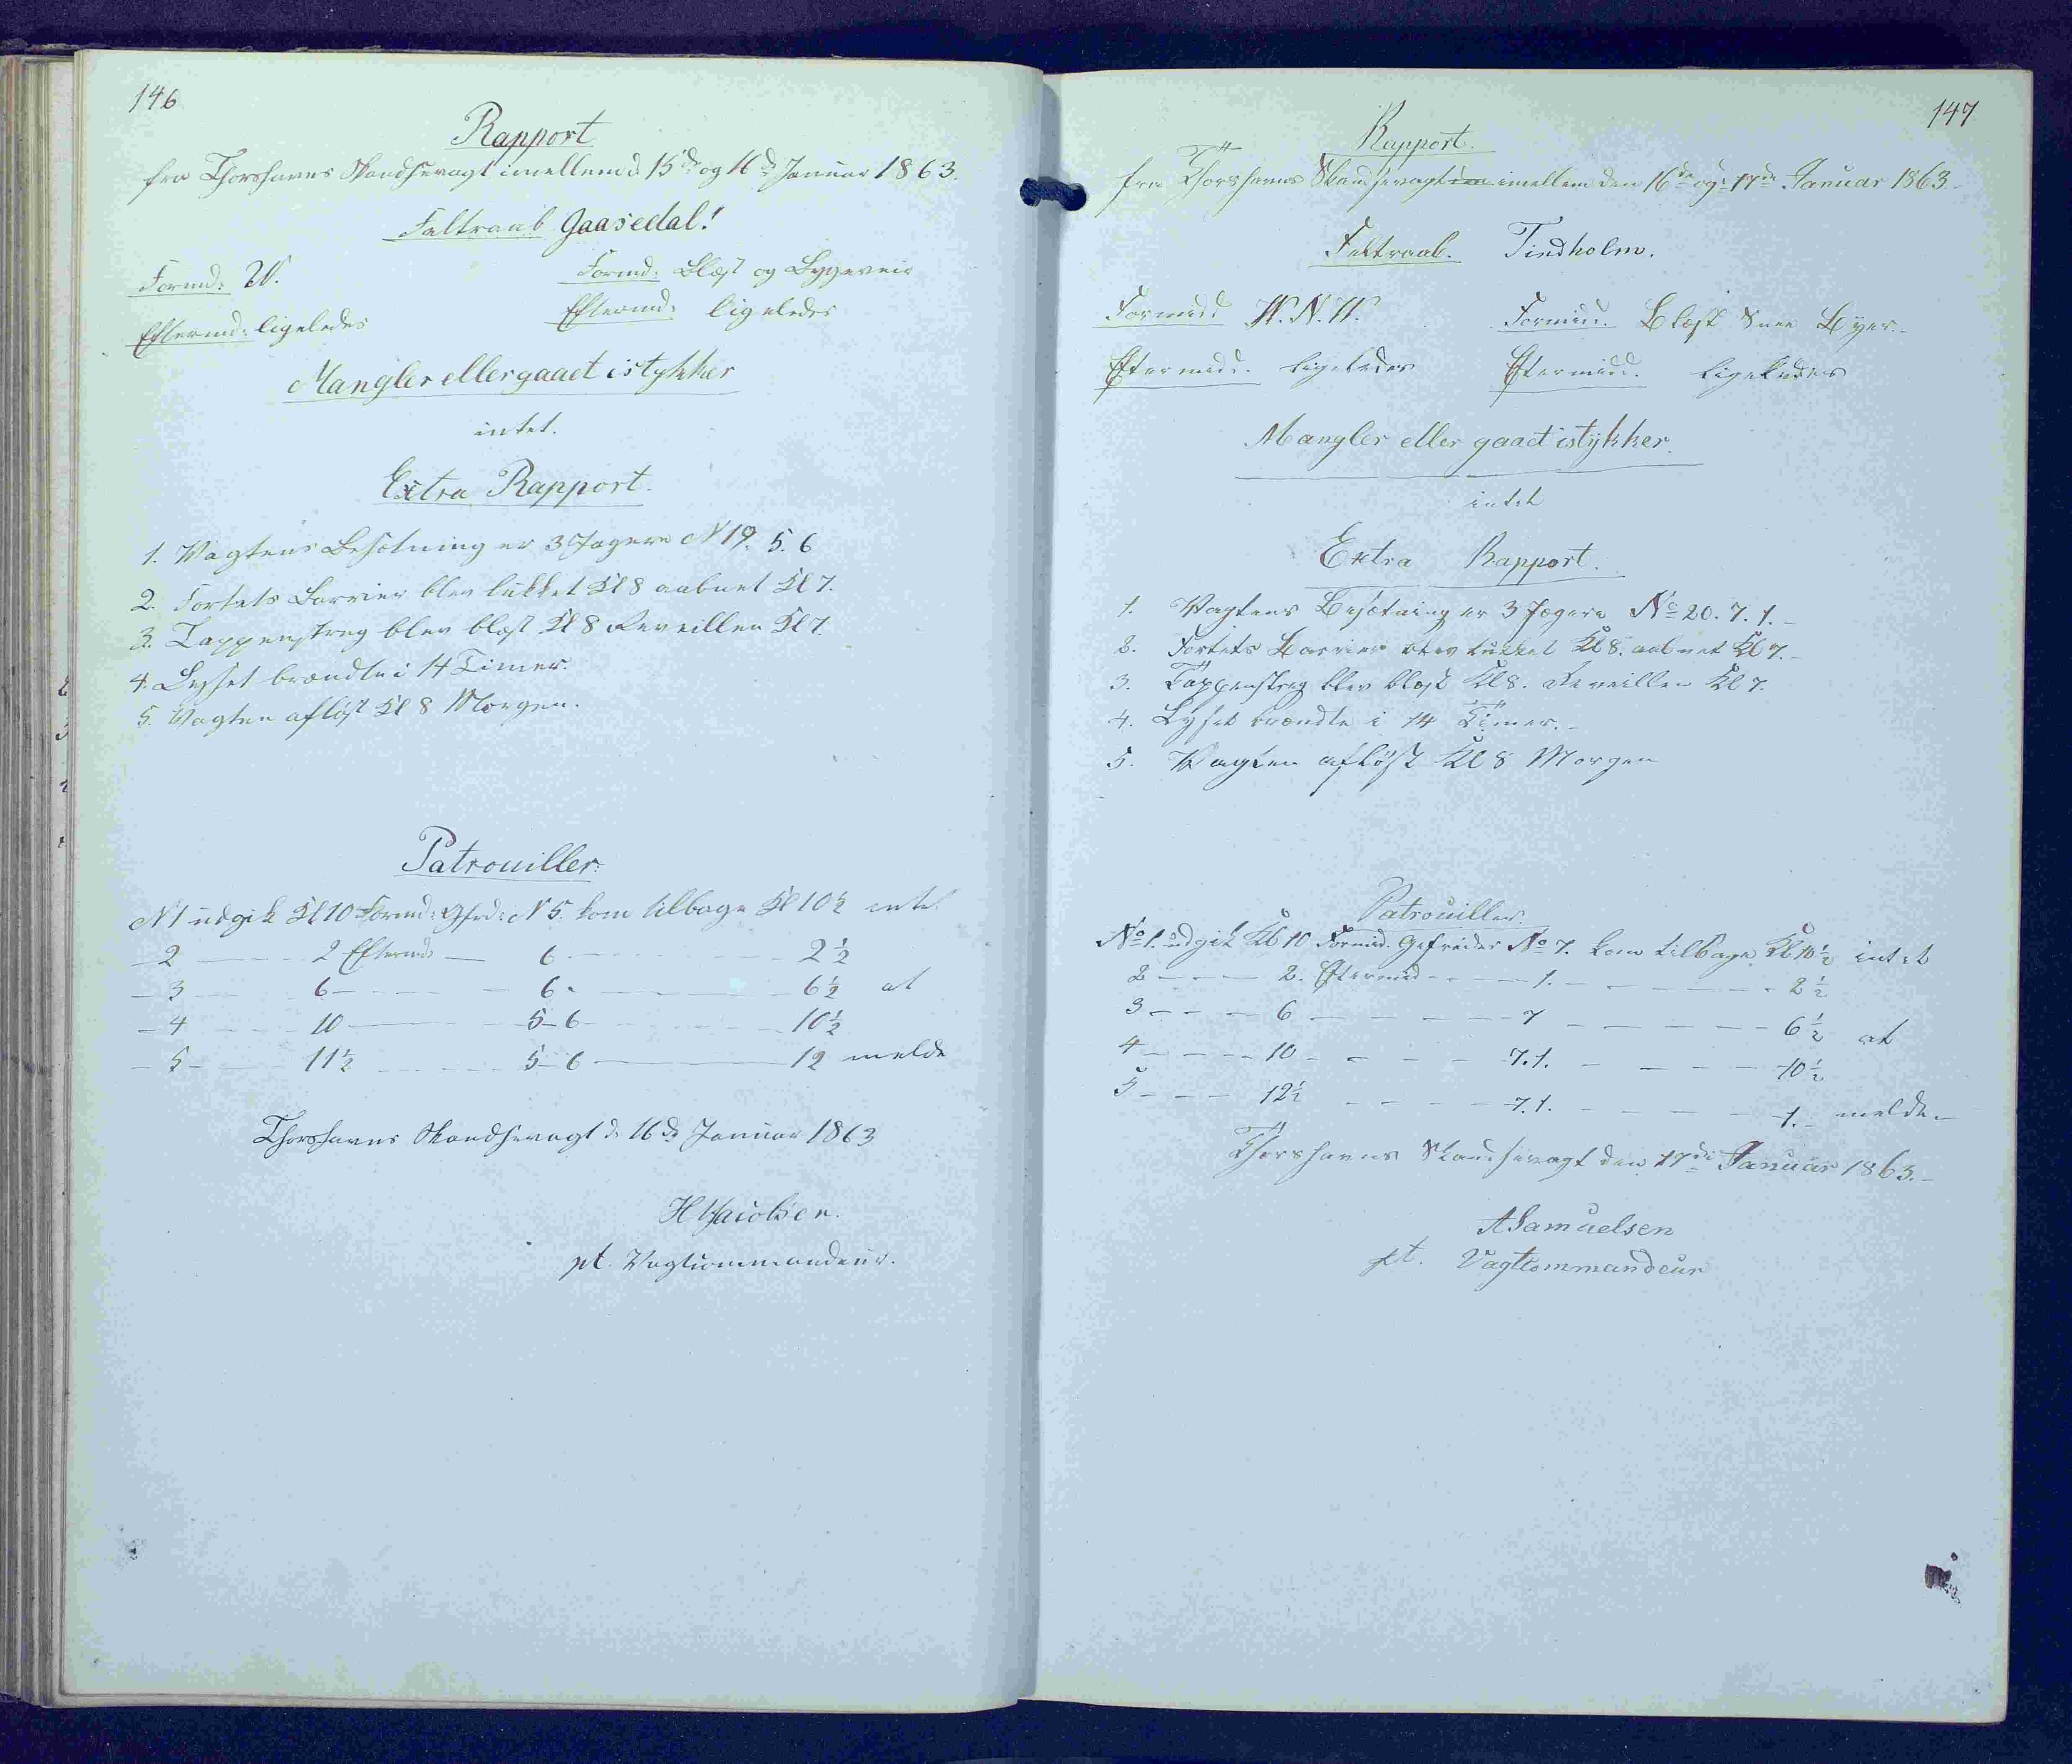 146
Rapport
fra Thorshavns Skandsevagt imellem d 15de og 16de Januar 1863.
Feltraab Gaasedal!
Formd: V.
Formd: Blæst og Bygeveir
Eftermd: ligeledes
Eftermd: ligeledes
Mangler eller gaaet istykker
intet.
Extra Rapport.
1. Vagtens Besætning er 3 Jægere N 19. 5. 6
2. Fortets Barrier blev lukket Kl 8 aabnet Kl 7.
3. Tappenstreg blev blæst Kl 8 Reveillen Kl 7.
4. Lyset brændte i 14 Timer.
5. Vagten afløst Kl 8 Morgen.
Patrouiller:
N 1 udgik Kl 10 Formd: Gfrd: N 5. kom tilbage Kl 10½ intet
– 2 – 2 Eftermd – 6 – 2½
– 3 – 6 – 6. – 6½ at
– 4 – 10 – 5–6 – 10½
– 5 – 11½ – 5–6 – 12 melde
Thorshavns Skandsevagt d. 16de Januar 1863
H Jacobsen.
pt. Vagtcommandeur.
147
Rapport.
fra Thorshavns Skandsevagt den imellem den 16de og 17de Januar 1863.
Feltraab. Tindholm.
Formidd. V.N.V.
Formidd. Blæst Snee Byer.
Eftermidd. ligeledes
Eftermidd. ligeledes
Mangler eller gaaet istykker.
intet
Extra Rapport.
1. Vagtens Besætning er 3 Jægere No 20. 7. 1.
2. Fortets Barrier blev lukket Kl 8. aabnet Kl 7.
3. Tappenstreg blev blæst Kl 8. Reveillen Kl 7.
4. Lyset brændte i 14 Timer.
5. Vagten afløst Kl 8 Morgen
Patrouiller.
No 1. udgik Kl 10 Formid. Gefreider No 7. kom tilbage Kl 10½ intet
2 – 2. Eftermid – 1. – 2½
3 – 6 – 7 – 6½ at
4 – 10 – 7.1. – 10½
5 – 12½ – 7.1. – 1. melde
Thorshavns Skandsevagt den 17de Januar 1863.
A Samuelsen
pt. Vagtcommandeur